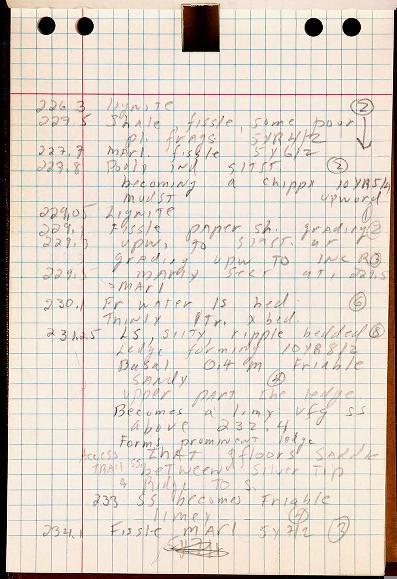 226.3 lignite ②
227.5 Shale, fissle, some poor
pl. frags 5YR4/2
227.7 Marl. fissle 5Y6/2
227.8 Poorly ind sltst ②
becoming a chippy 10YR5/4
mudst upword
229.05 Lignite ①
229.1 Fissle paper sh. grading ②
229.3 upw. to sltst
grading upw to
229.5 marly at 229.5
→marl
230.1 Fr water ls bed ⑥
Thinly ltr. x bed
231.25 LS, silty, ripple bedded ⑤
Ledge forming 10YR8/2
Basal 0.4 m Friable
sandy ④
upper part the ledge
Becomes a limy vfg ss
above 232.4
Forms prominent ledge
Access that floors saddle
Trail ss between Silver Tip
& Ridge to S.
233 SS becomes Friable
limey ④
234.1 Fissle marl 5Y7/2 ③